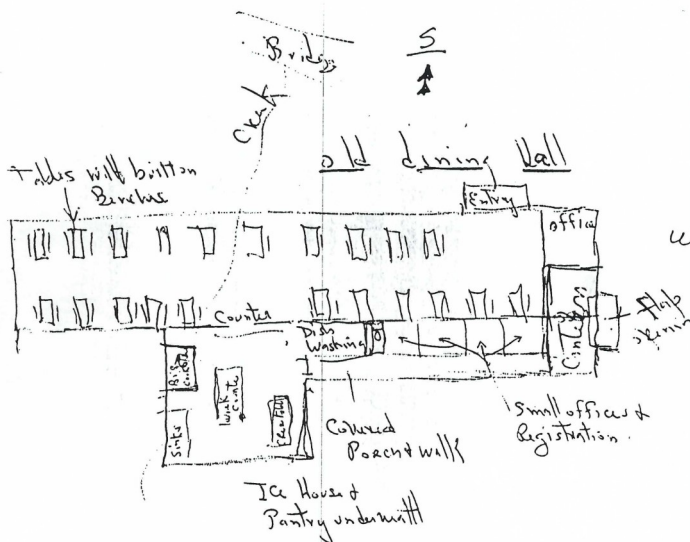 S
Bridge
Creek
old dining Hall
Tables with built on
Benches
Entry
office
Counter
Dish
Washing
Canteen
Flap
Big
Sinks
work
Covered
Porch & walk
Small offices &
Registration.
Ice House &
Pantry underneath